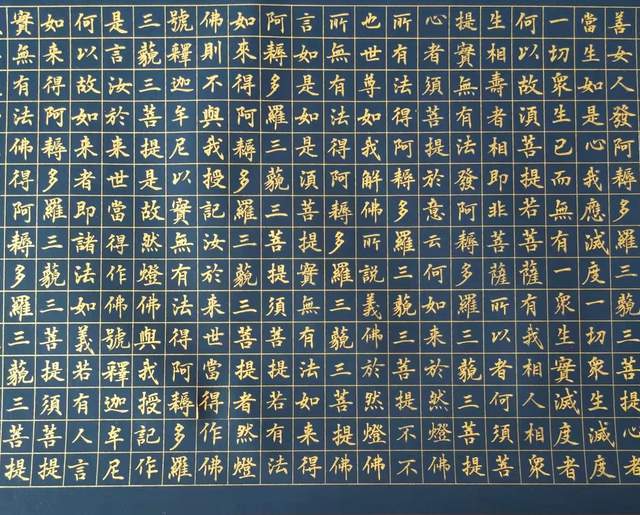 善女人發阿耨多羅三藐三菩提心者
當生如是心我應滅度一切眾生滅度
一切眾生已而無有一眾生實滅度者
何以故須菩提若菩薩有我相人相眾
生相壽者相即非菩薩所以者何須菩
提實無有法發阿耨多羅三藐三菩提
心者須菩提於意云何如來於然燈佛
所有法得阿耨多羅三藐三菩提不不
也世尊如我解佛所說義佛於然燈佛
所無有法得阿耨多羅三藐三菩提佛
言如是如是須菩提實無有法如來得
阿耨多羅三藐三菩提須菩提若有法
如來得阿耨多羅三藐三菩提者然燈
佛則不與我授記汝於來世當得作佛
號釋迦牟尼以實無有法得阿耨多羅
三藐三菩提是故然燈佛與我授記作
是言汝於來世當得作佛號釋迦牟尼
何以故如來者即諸法如義若有人言
如來得阿耨多羅三藐三菩提須菩提
實無有法佛得阿耨多羅三藐三菩提